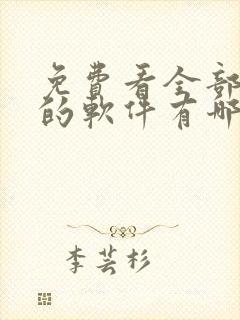 免費看全部
的軟件有哪
李芸杉